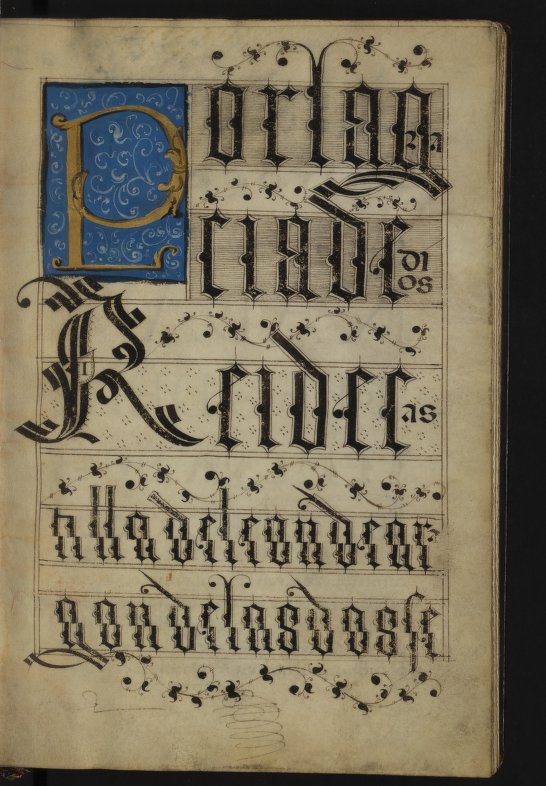 Por la gra
cia de dios
Rei de cas
tilla de leon de ara
gon de las dos se